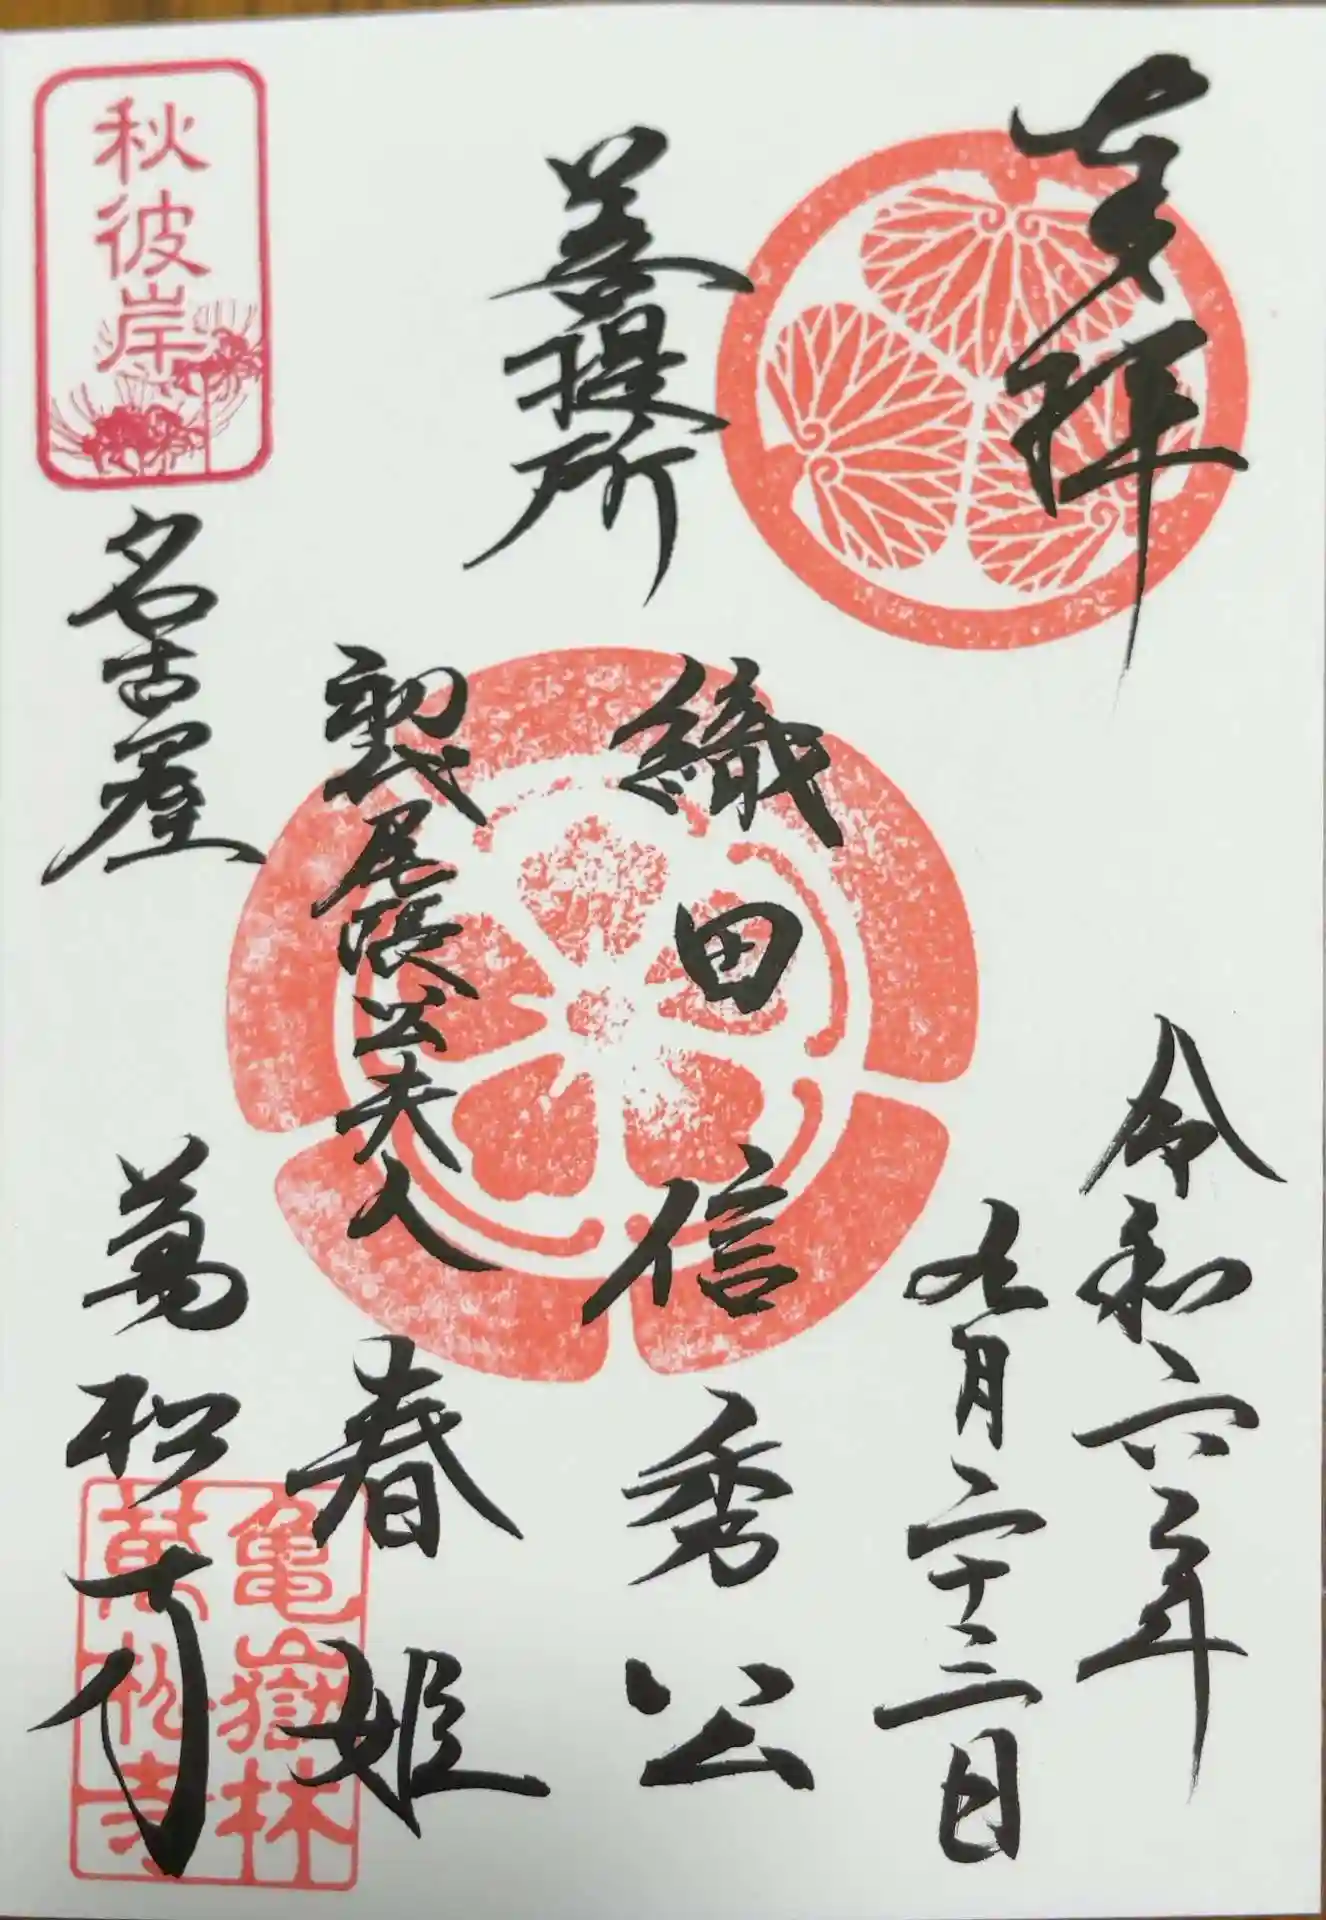 奉拝
令和六年
九月二十三日
菩提所
織田信秀公
初代尾張公夫人
春姫
秋彼岸
名古屋
萬松寺
亀嶽林
萬松寺